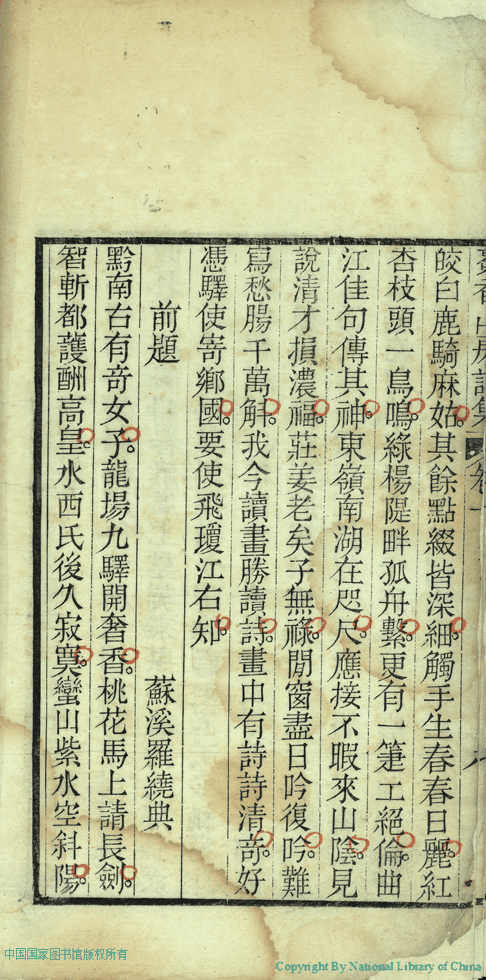 皎白鹿騎麻姑。其餘點綴皆深細。觸手生春春日麗。紅
杏枝頭一鳥鳴。綠楊隄畔孤舟繫。更有一筆工絕倫。曲
江佳句傳其神。東嶺南湖在咫尺。應接不暇來山陰。見
說清才損濃福。莊姜老矣子無祿。閒窗盡日吟復吟。難
寫愁腸千萬斛。我今讀畫勝讀詩。畫中有詩詩清奇。好
憑驛使寄鄉國。要使飛瓊江右知。
前題
蘇溪羅繞典
黔南古有奇女子。龍場九驛開奢香。桃花馬上請長劍。
智斬都護酬高皇。水西氏後久寂寞。蠻山紫水空斜陽。
中国国家图书馆版权所有
Copyright By National Library of China